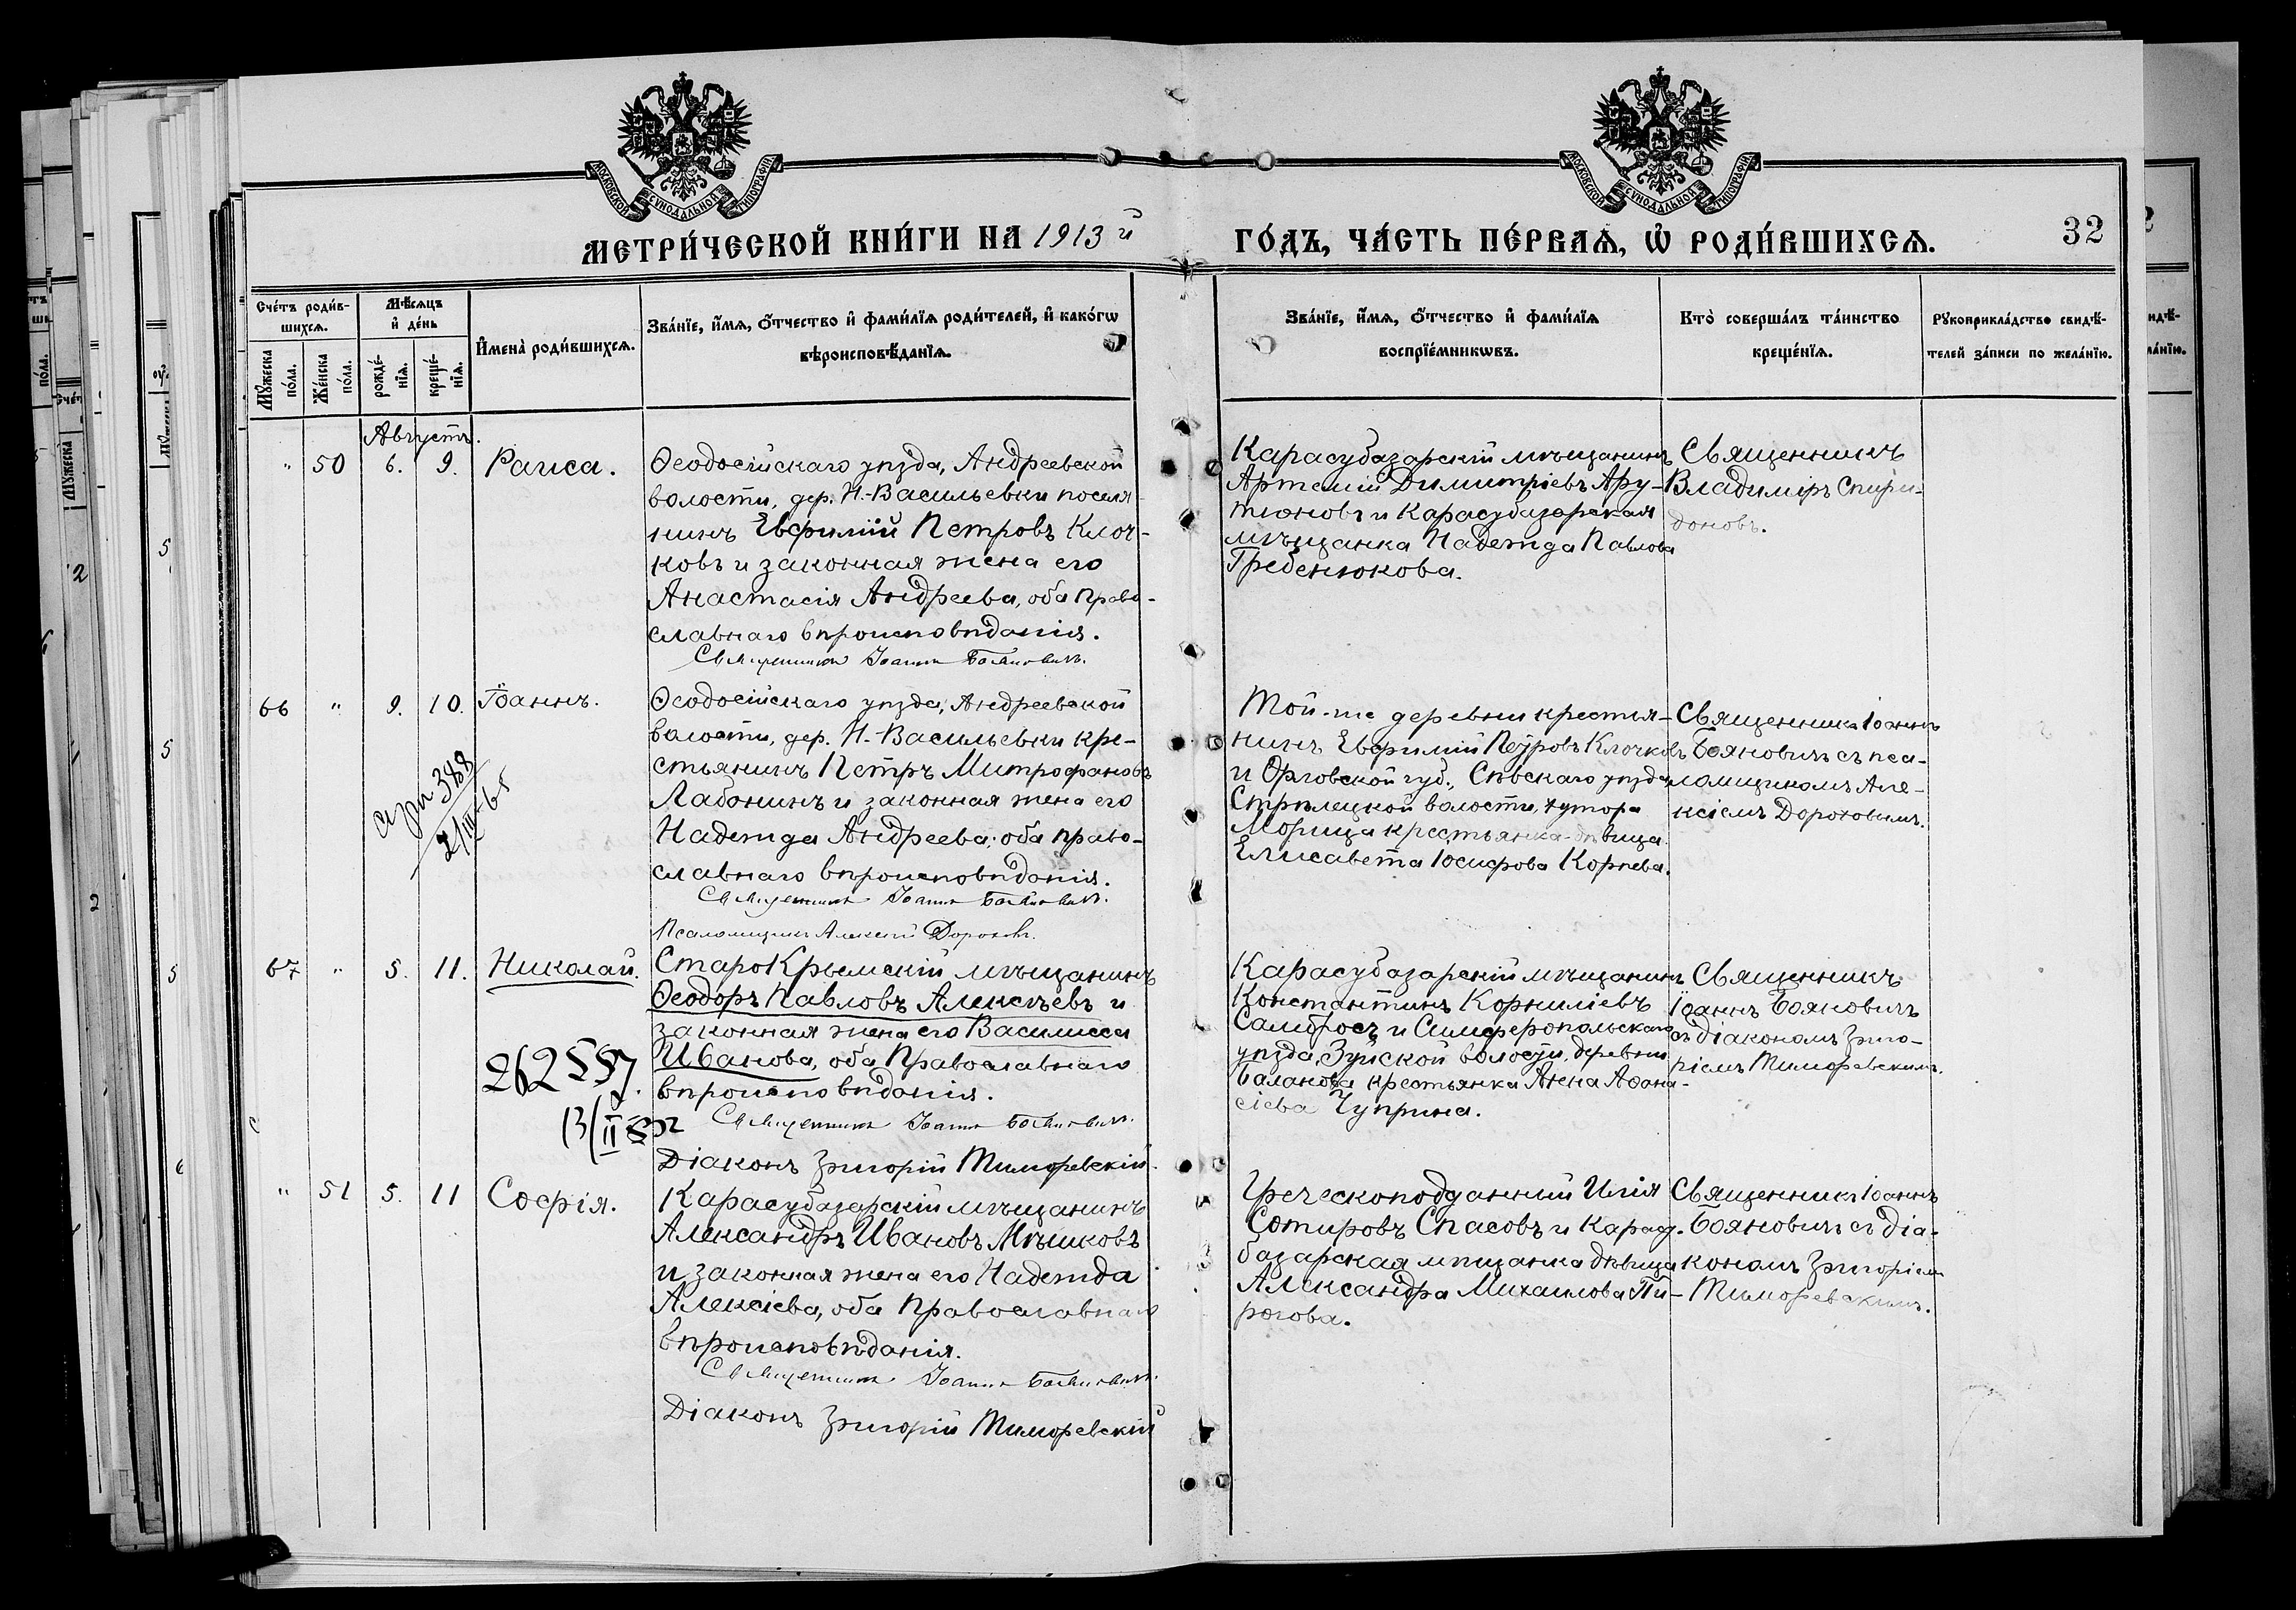 МОСКОВСКОЙ СѴНОДАЛЬНОЙ ТИПОГРАФІИ
МОСКОВСКОЙ СѴНОДАЛЬНОЙ ТИПОГРАФІИ
МЕТРИ́ЧЕСКОЙ КНИ́ГИ НА 1913 й
ГО́ДЪ, ЧА́СТЬ ПЕ́РВАѦ, Ѡ҆ РОДИ́ВШИХСѦ.
32
Сче́тъ роди́в-
шихсѧ.
Мѹ́жеска по́ла.
Же́нска по́ла.
Мѣ́сѧцъ
и҆ де́нь
рожде́-
нїѧ.
креще́-
нїѧ.
И҆мена̀ роди́вшихсѧ.
Зва́нїе, и҆́мѧ, ѻ҆́тчество и҆ фами́лїѧ роди́телей, и҆ како́гѡ
вѣроисповѣ́данїѧ.
Зва́нїе, и҆́мѧ, ѻ҆́тчество и҆ фами́лїѧ
воспрїе́мникѡвъ.
Кто̀ соверша́лъ та́инство
креще́нїѧ.
Рѹкоприкла́дство свидѣ́-
телей за́писи по жела́нїю.
Августъ.
" 50 6. 9. Раиса.
Ѳеодосійскаго уѣзда, Андреевской
волости, дер. Н.-Васильевки поселя
нинъ Евфимій Петровъ Клоч-
ковъ и законная жена его
Анастасія Андреева, оба право-
славнаго вѣроисповѣданія.
Священникъ Іоаннъ Бояновичъ.
Карасубазарскій мѣщанинъ
Артемій Димитріевъ Ару-
тюновъ и Карасубазарская
мѣщанка Надежда Павлова
Гребенюкова.
Священникъ
Владиміръ Спири-
доновъ.
66 " 9. 10. Іоаннъ.
Ѳеодосійскаго уѣзда, Андреевской
волости, дер. Н.-Васильевки кре-
стьянинъ Петръ Митрофановъ
Лабонинъ и законная жена его
Надежда Андреева; оба право-
славнаго вѣроисповѣданія.
Священникъ Іоаннъ Бояновичъ.
Псаломщикъ Алексій Дороховъ.
388
2/III-65
Той-же деревни крестья-
нинъ Евфимій Петровъ Клочковъ
и Орловской губ., Сѣвскаго уѣзда,
Стрѣлецкой волости, хутора
Морица крестьянка-дѣвица
Елисавета Іосифова Корнева.
Священникъ Іоаннъ
Бояновичъ съ пса-
ломщикомъ Але-
ксіемъ Дороховымъ.
67 " 5. 11. Николай.
СтароКрымскій мѣщанинъ
Ѳеодоръ Павловъ Алексѣевъ и
законная жена его Василисса
Иванова, оба Православнаго
вѣроисповѣданія.
Священникъ Іоаннъ Бояновичъ.
Діаконъ Григорій Тиморевскій.
262557.
13/II 52
Карасубазарскій мѣщанинъ
Константинъ Корниліевъ
и Симферопольскаго
уѣзда, Зуйской волости, деревни
Баланова крестьянка Анна Аѳана-
сіева Чуприна.
Священникъ
Іоаннъ Бояновичъ
съ діакономъ Григо-
ріемъ Тиморевскимъ.
" 51 5. 11 Софія.
Карасубазарскій мѣщанинъ
Александръ Ивановъ Мѣшковъ
и законная жена его Надежда
Алексіева, оба Православнаго
вѣроисповѣданія.
Священникъ Іоаннъ Бояновичъ.
Діаконъ Григорій Тиморевскій
Греческоподданный Илія
Сотировъ Спасовъ и Карасу-
базарская мѣщанка дѣвица
Александра Михаилова Пи-
рогова.
Священникъ Іоаннъ
Бояновичъ съ діа-
кономъ Григоріемъ
Тиморевскимъ.